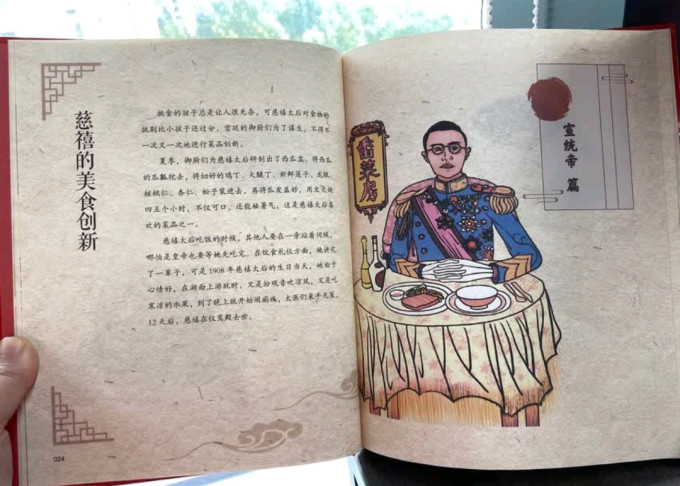 慈禧的美食创新
挑食的孩子总是让人很无奈，可慈禧太后对食物的
挑剔比小孩子还过分，宫廷的御厨们为了谋生，不得不
一次又一次地进行菜品创新。
夏季，御厨们为慈禧太后研制出了西瓜盅，将西瓜
的瓜瓤挖去，将切好的鸡丁、火腿丁、新鲜莲子、龙眼、
核桃仁、杏仁、松子装进去，再将瓜皮盖好，用文火炖
四五个小时，不仅可口，还能祛暑气，这是慈禧太后喜
欢的菜品之一。
慈禧太后吃饭的时候，其他人要在一旁站着伺候，
哪怕是皇帝也要等她先吃完。在饮食礼仪方面，她讲究
了一辈子，可是1908年慈禧太后的生日当天，她由于
心情好，在湖面上游玩时，又是扮观音吹凉风，又是吃
寒凉的水果，到了晚上就开始闹痢疾，太医们束手无策，
12天后，慈禧在仪鸾殿去世。
024
番菜房
宣统帝 篇